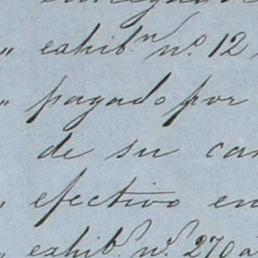 " exhib.n no. 12
" pagado por
de su
" efectivo en
" exhib.n no. 270 a